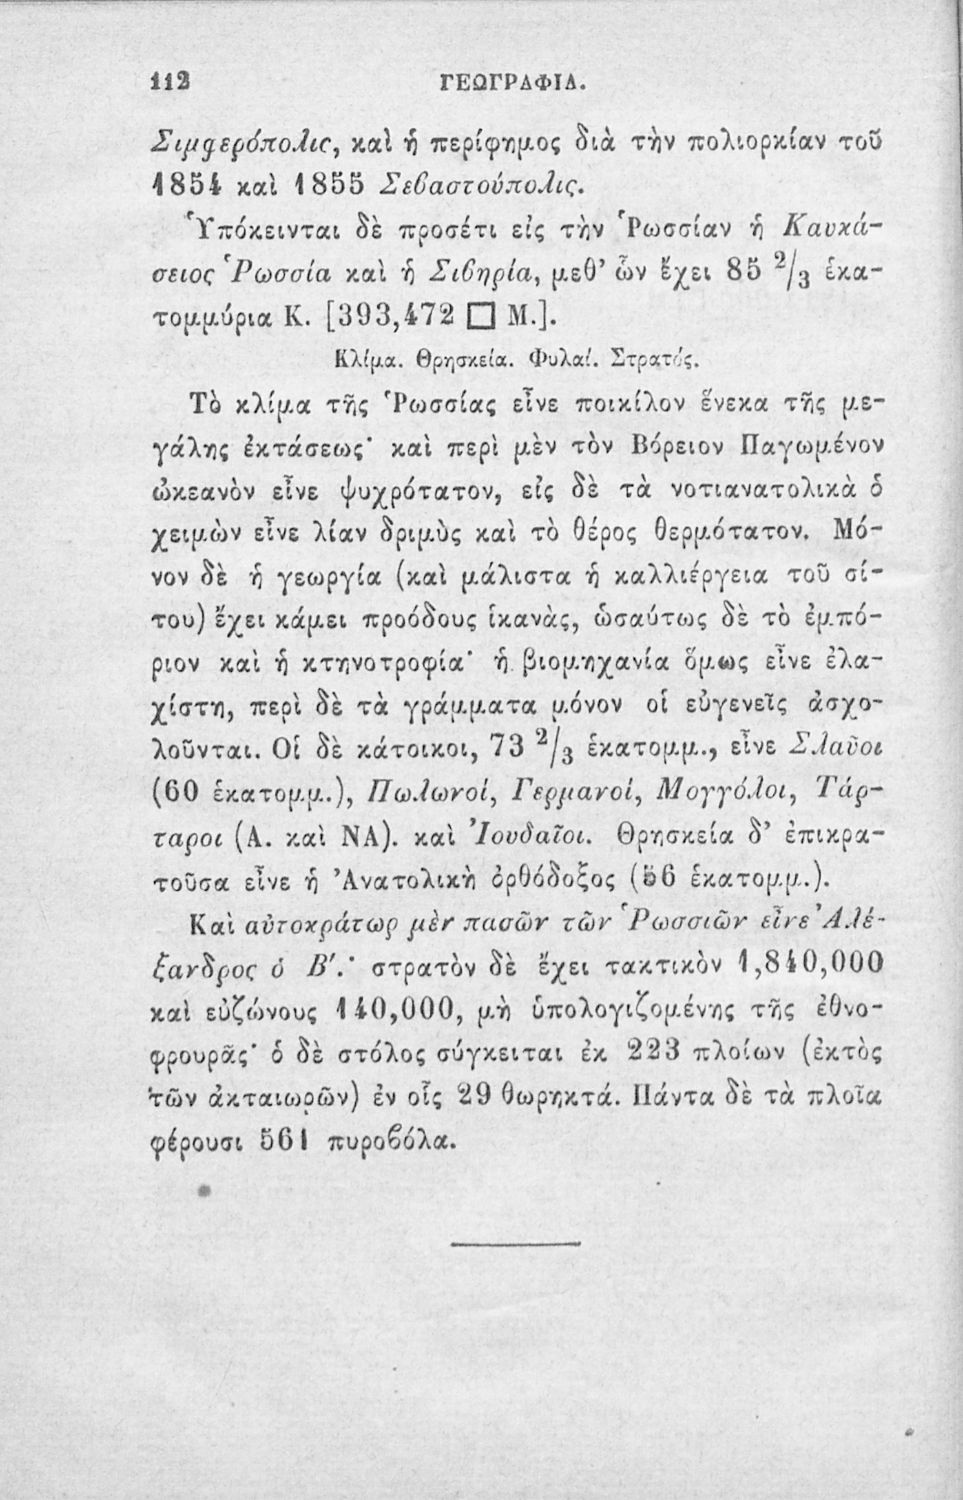 112 ΓΕΩΓΡΑΦΙΑ.
Σιμφερόπολις, καὶ ἡ περίφημος διὰ τὴν πολιορκίαν τοῦ
1854 καὶ 1855 Σεβαστούπολις.
Ὑπόκεινται δὲ προσέτι εἰς τὴν Ῥωσσίαν ἡ Καυκά-
σειος Ῥωσσία καὶ ἡ Σιβηρία, μεθ’ ὧν ἔχει 85 2/3 ἑκα-
τομμύρια Κ. [393,472 □ Μ.].
Κλίμα. Θρησκεία. Φυλαί. Στρατός.
Τὸ κλίμα τῆς Ῥωσσίας εἶνε ποικίλον ἕνεκα τῆς με-
γάλης ἐκτάσεως· καὶ περὶ μὲν τὸν Βόρειον Παγωμένον
ὠκεανὸν εἶνε ψυχρότατον, εἰς δὲ τὰ νοτιανατολικὰ ὁ
χειμὼν εἶνε λίαν δριμὺς καὶ τὸ θέρος θερμότατον. Μό-
νον δὲ ἡ γεωργία (καὶ μάλιστα ἡ καλλιέργεια τοῦ σί-
του) ἔχει κάμει προόδους ἱκανὰς, ὡσαύτως δὲ τὸ ἐμπό-
ριον καὶ ἡ κτηνοτροφία· ἡ βιομηχανία ὅμως εἶνε ἐλα-
χίστη, περὶ δὲ τὰ γράμματα μόνον οἱ εὐγενεῖς ἀσχο-
λοῦνται. Οἱ δὲ κάτοικοι, 73 2/3 ἑκατομμ., εἶνε Σλαῦοι
(60 ἑκατομμ.), Πωλωνοί, Γερμανοί, Μογγόλοι, Τάρ-
ταροι (Α. καὶ ΝΑ). καὶ Ἰουδαῖοι. Θρησκεία δ’ ἐπικρα-
τοῦσα εἶνε ἡ Ἀνατολικὴ ὀρθόδοξος (56 ἑκατομμ.).
Καὶ αὐτοκράτωρ μὲν πασῶν τῶν Ῥωσσιῶν εἶνε Ἀλέ-
ξανδρος ὁ Β′.· στρατὸν δὲ ἔχει τακτικὸν 1,840,000
καὶ εὐζώνους 140,000, μὴ ὑπολογιζομένης τῆς ἐθνο-
φρουρᾶς· ὁ δὲ στόλος σύγκειται ἐκ 223 πλοίων (ἐκτὸς
τῶν ἀκταιωρῶν) ἐν οἷς 29 θωρηκτά. Πάντα δὲ τὰ πλοῖα
φέρουσι 561 πυροβόλα.